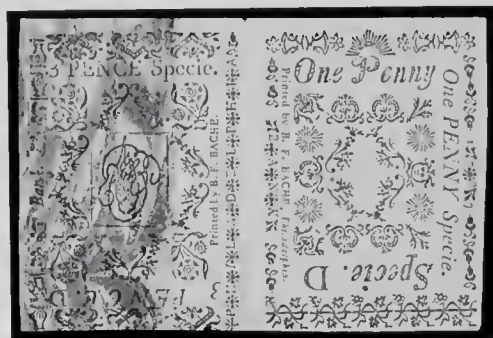 3 PENCE Specie.
Printed by B. F. BACHE.
3 PENCE
One Penny
One PENNY Specie.
Printed by B. F. BACHE, Philadelphia.
BANK
Specie. D